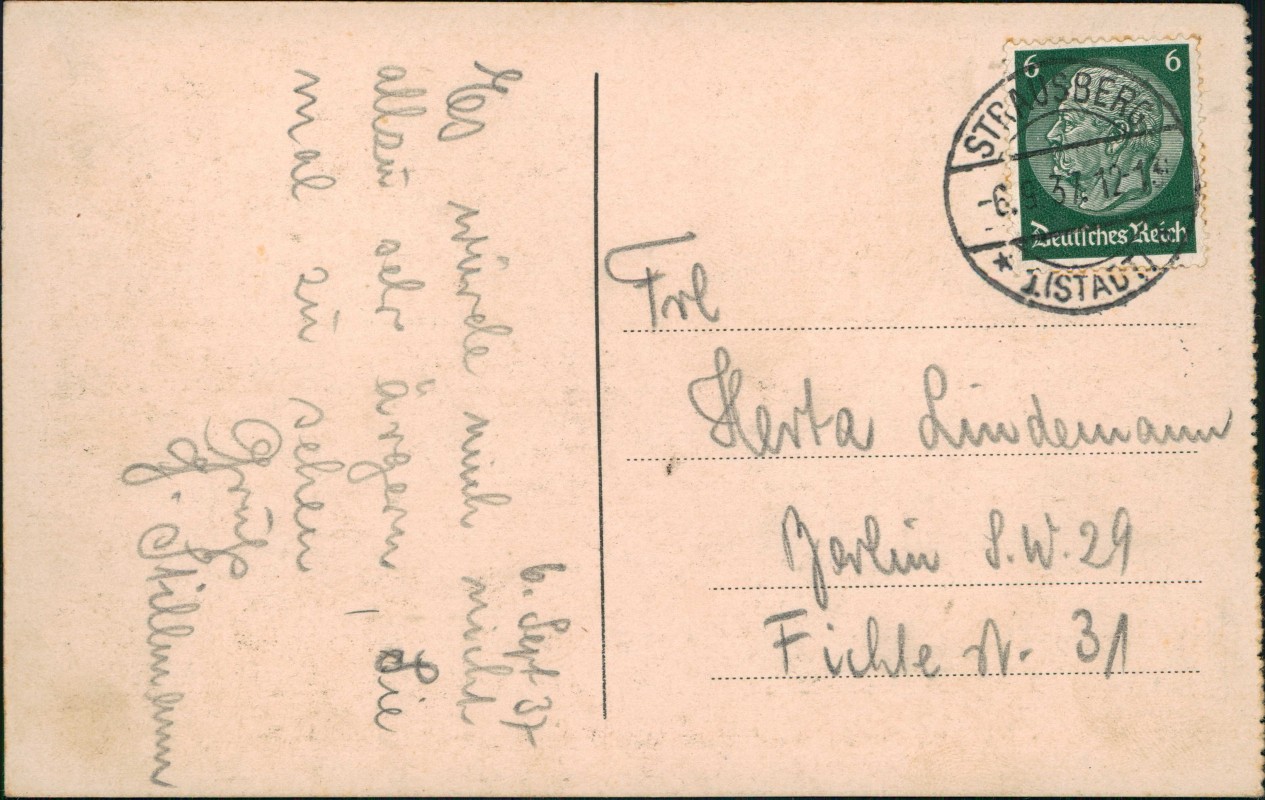 6. Sept 37
Es würde mich nicht
allzu sehr ärgern, Sie
mal zu sehen
Gruß
G. Stillmann
6 6
Deutsches Reich
STRAUSBERG
-6.9.37.12-13
* 1(STADT)
Frl
Herta Lindemann
Berlin S.W. 29
Fichte St. 31